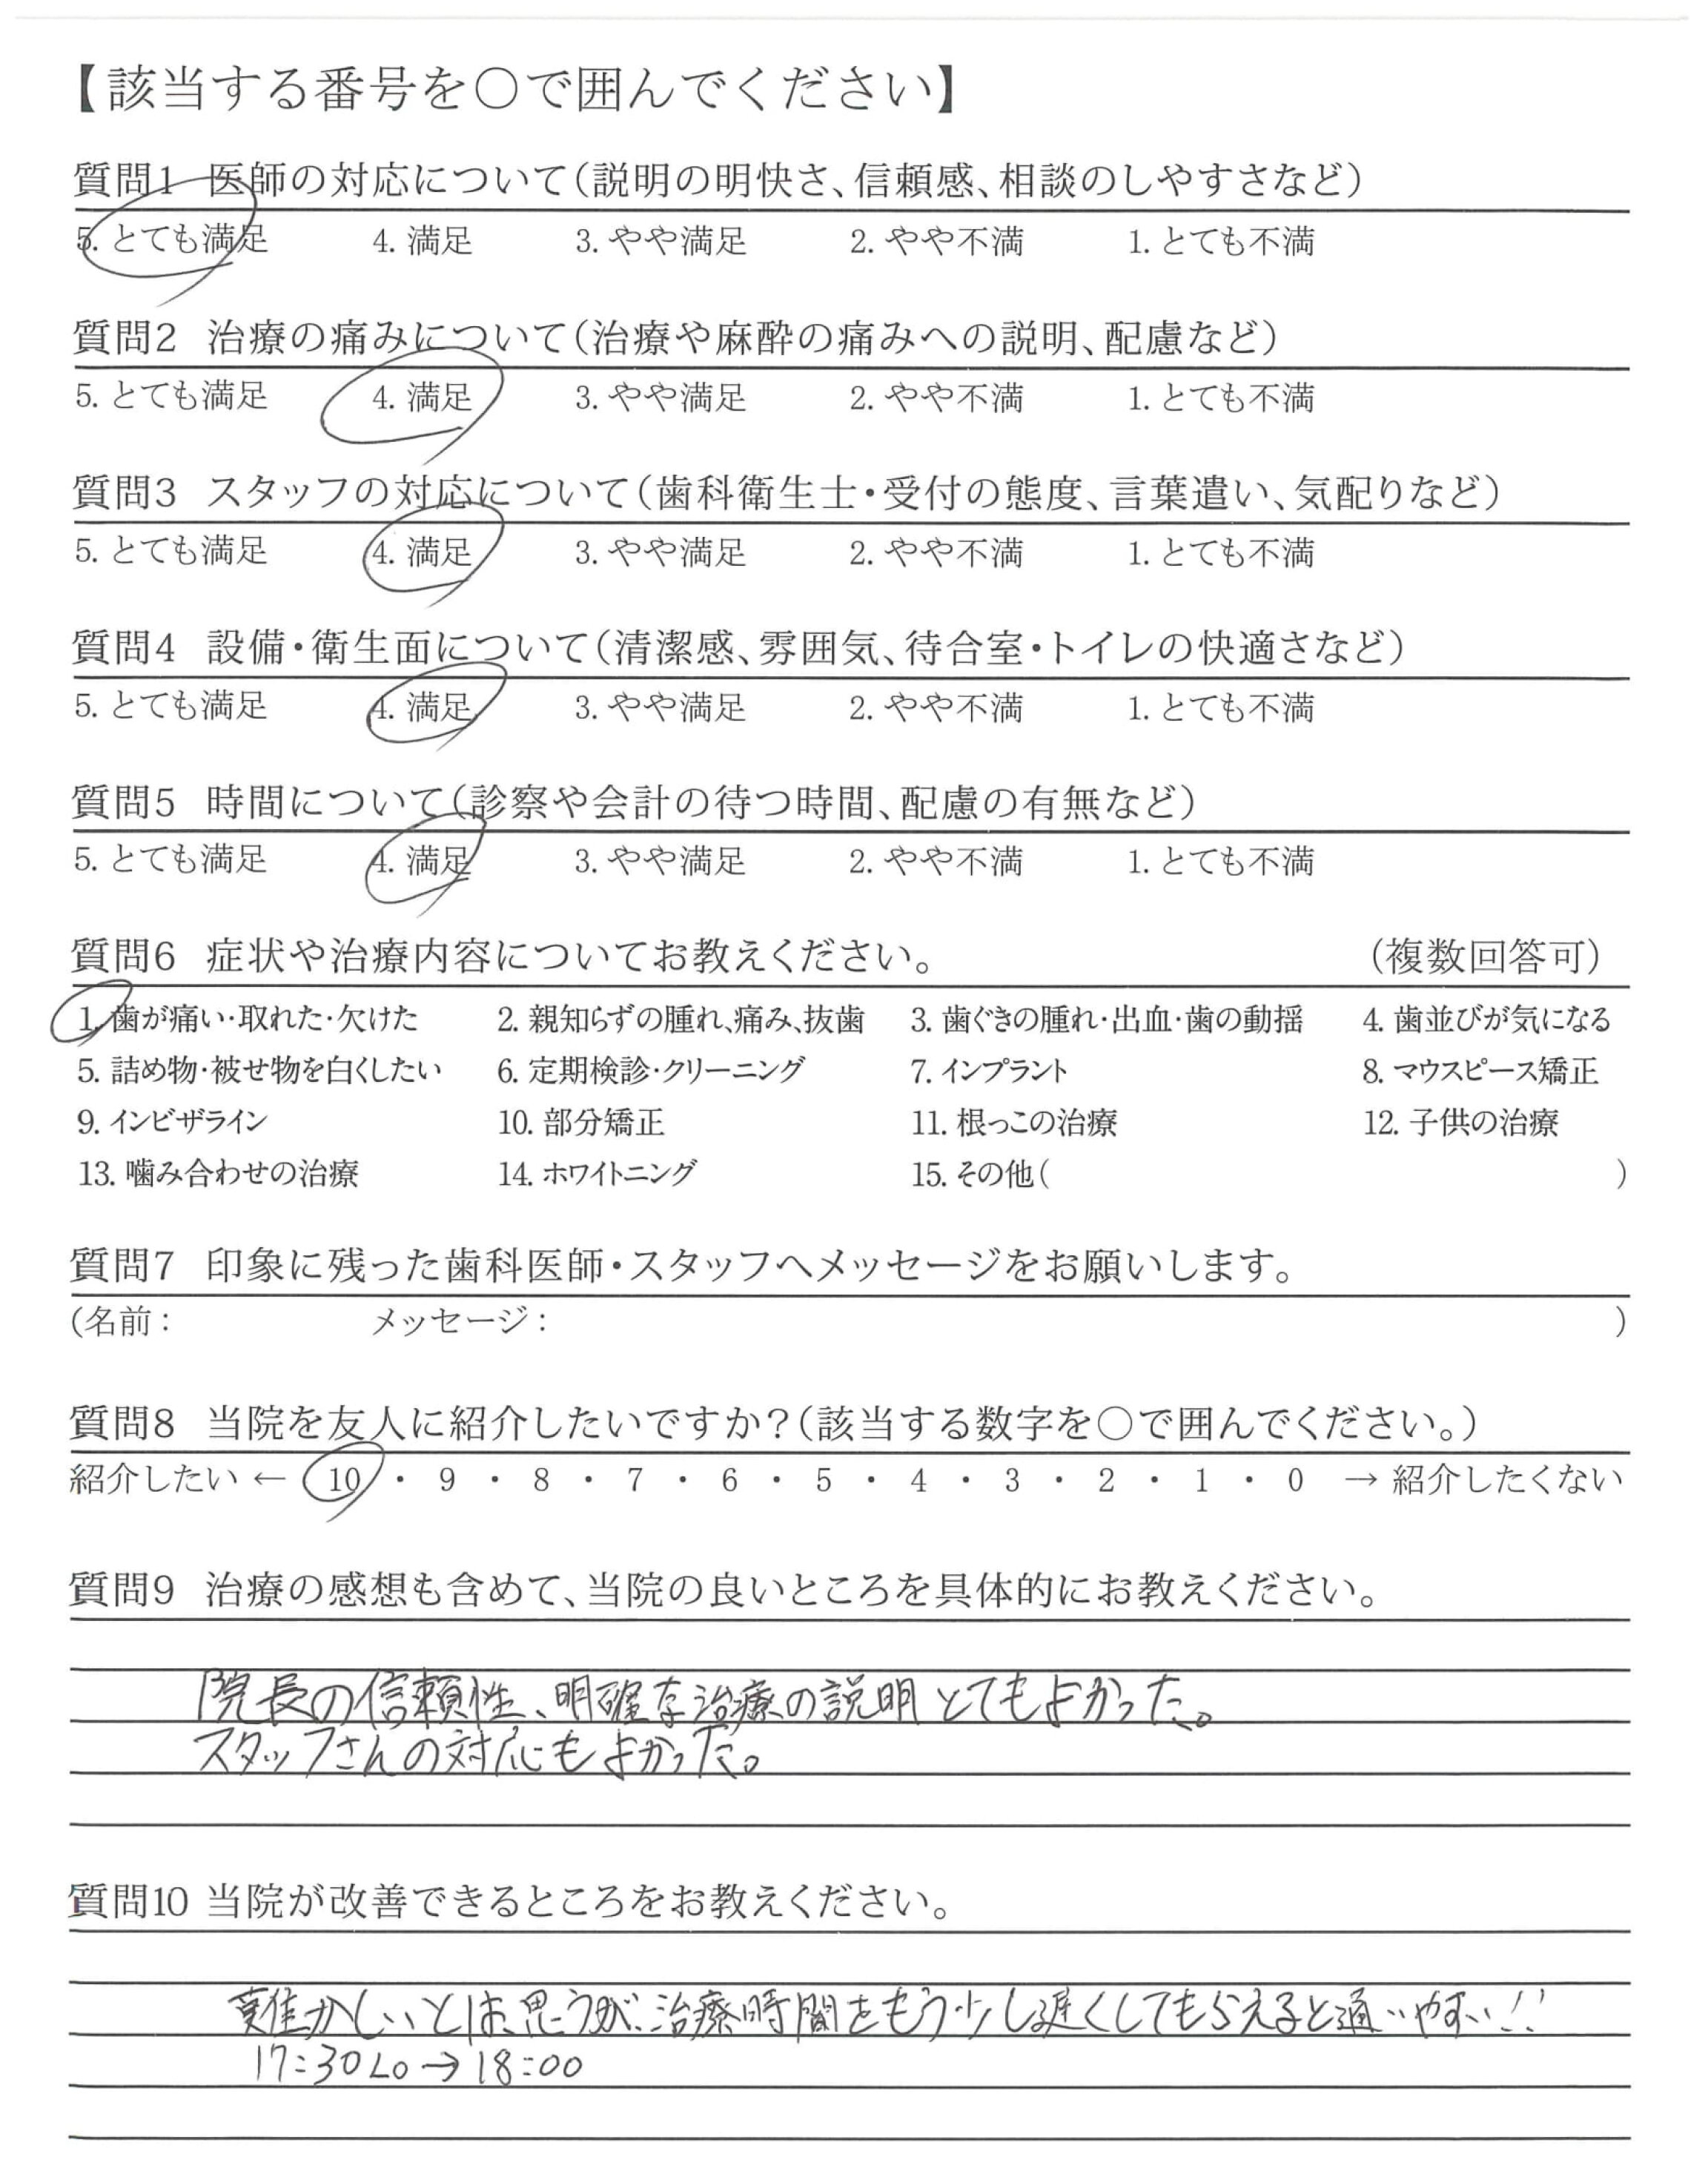 【該当する番号を○で囲んでください】
質問1 医師の対応について(説明の明快さ、信頼感、相談のしやすさなど)
5. とても満足 4. 満足 3. やや満足 2. やや不満 1. とても不満
質問2 治療の痛みについて(治療や麻酔の痛みへの説明、配慮など)
5. とても満足 4. 満足 3. やや満足 2. やや不満 1. とても不満
質問3 スタッフの対応について(歯科衛生士・受付の態度、言葉遣い、気配りなど)
5. とても満足 4. 満足 3. やや満足 2. やや不満 1. とても不満
質問4 設備・衛生面について(清潔感、雰囲気、待合室・トイレの快適さなど)
5. とても満足 4. 満足 3. やや満足 2. やや不満 1. とても不満
質問5 時間について(診察や会計の待つ時間、配慮の有無など)
5. とても満足 4. 満足 3. やや満足 2. やや不満 1. とても不満
質問6 症状や治療内容についてお教えください。 (複数回答可)
1. 歯が痛い・取れた・欠けた 2. 親知らずの腫れ、痛み、抜歯 3. 歯ぐきの腫れ・出血・歯の動揺 4. 歯並びが気になる
5. 詰め物・被せ物を白くしたい 6. 定期検診・クリーニング 7. インプラント 8. マウスピース矯正
9. インビザライン 10. 部分矯正 11. 根っこの治療 12. 子供の治療
13. 噛み合わせの治療 14. ホワイトニング 15. その他( )
質問7 印象に残った歯科医師・スタッフへメッセージをお願いします。
(名前: メッセージ: )
質問8 当院を友人に紹介したいですか?(該当する数字を○で囲んでください。)
紹介したい ← 10 ・ 9 ・ 8 ・ 7 ・ 6 ・ 5 ・ 4 ・ 3 ・ 2 ・ 1 ・ 0 → 紹介したくない
質問9 治療の感想も含めて、当院の良いところを具体的にお教えください。
院長の信頼性、明確な治療の説明とてもよかった。
スタッフさんの対応もよかった。
質問10 当院が改善できるところをお教えください。
難かしいとは思うが、治療時間をもう少し遅くしてもらえると通いやすい!!
17:30Lo→18:00